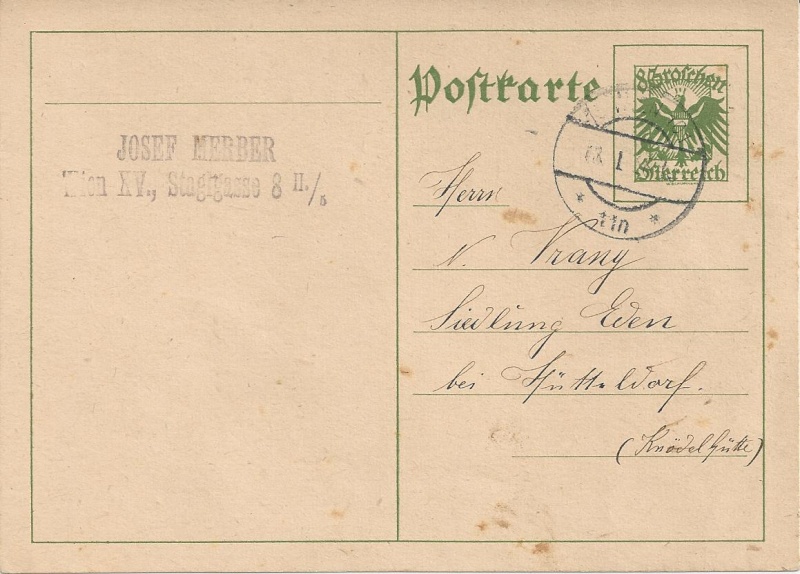 JOSEF MERBER
Wien XV., Staglgasse 8 II./5
Postkarte
8 Groschen
Österreich
Herrn
N. Vrany
Siedlung Eden
bei Hütteldorf.
(Knödelhütte)